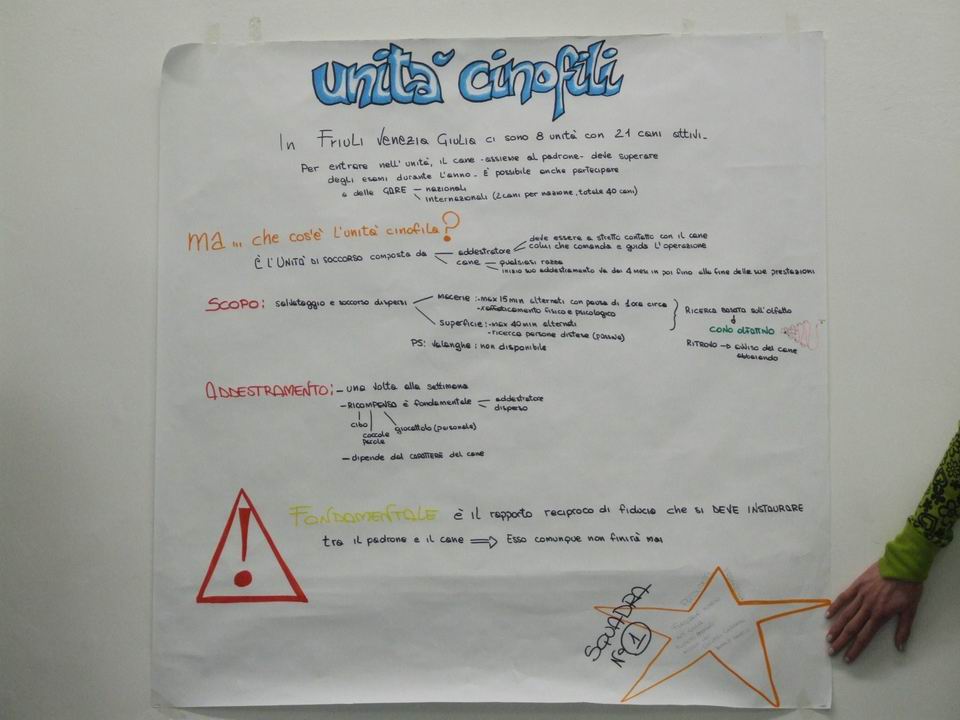 unità cinofili
In FRIULI VENEZIA GIULIA ci sono 8 unità con 21 cani attivi.
Per entrare nell'unità, il cane -assieme al padrone- deve superare
degli esami durante l'anno. È possibile anche partecipare
a delle GARE — nazionali
internazionali (2 cani per nazione, totale 40 cani)
ma... che cos'è l'unità cinofila?
È L'UNITÀ DI SOCCORSO composta da — addestratore — deve essere a stretto contatto con il cane
colui che comanda e guida l'operazione
cane — qualsiasi razza
inizio suo addestramento va dai 4 mesi in poi fino alla fine delle sue prestazioni
SCOPO: salvataggio e soccorso dispersi
macerie: -max 15 min alternati con pausa di 1 ora circa
-affaticamento fisico e psicologico
superficie: -max 40 min alternati
-ricerca persone distese (passive)
PS: valanghe: non disponibile
RICERCA BASATA sull'olfatto
CONO OLFATTIVO
RITROVO → avviso del cane
abbaiando
ADDESTRAMENTO: - una volta alla settimana
- RICOMPENSA è fondamentale — addestratore
disperso
cibo
coccole
parole
giocattolo (personale)
- dipende dal CARATTERE del cane
! FONDAMENTALE è il rapporto reciproco di fiducia che si DEVE INSTAURARE
tra il padrone e il cane ⇒ Esso comunque non finirà mai
SQUADRA
N° 1